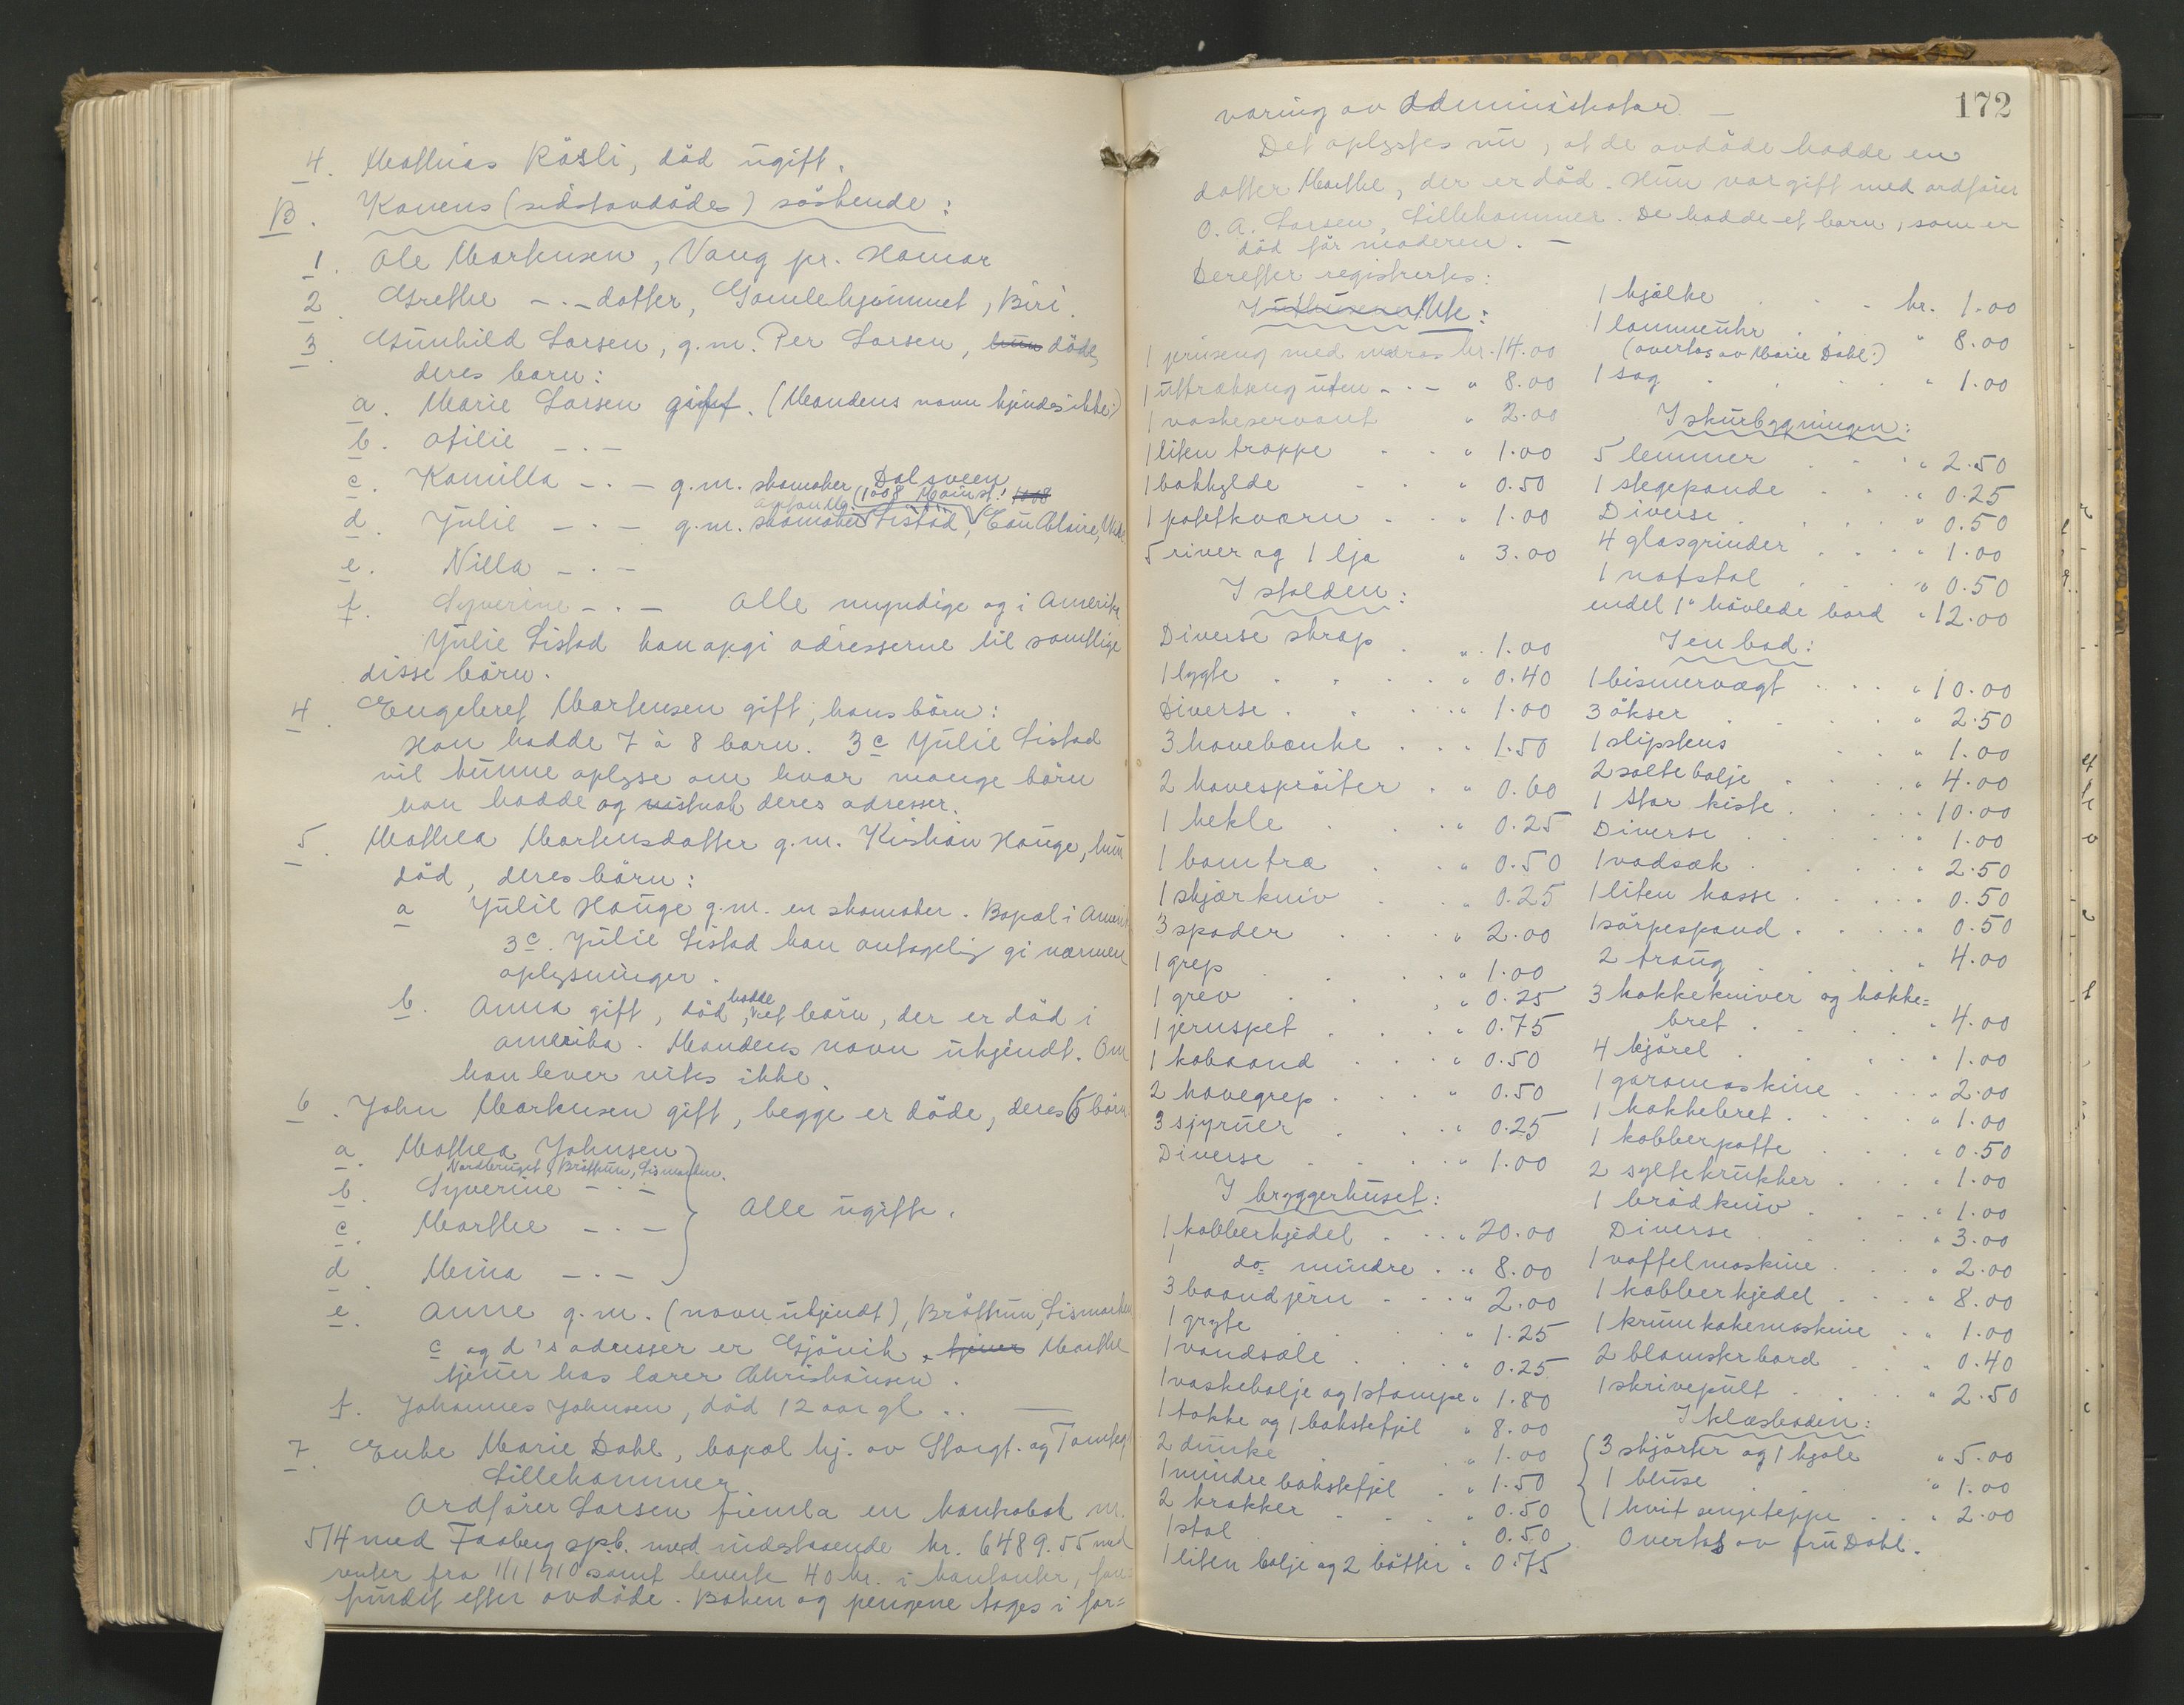 4. Mathias Røsli, död ugift.
B. Konens (sidstavdödes) söskende:
1. Ole Martensen, Vang pr. Hamar
2. Grethe -.- datter, Gamlehjemmet, Biri.
3. Gunhild Larsen, g.m. Per Larsen, hun döde,
deres barn:
a. Marie Larsen gift. (Mandens navn kjendes ikke)
b. Otilie -.-
c. Kamilla -.- g.m. skomaker Dalsveen
(1008 Main st. 1008
d. Julie -.- g.m. skomaker Listad, Eau Claire,
e. Nilla -.-
f. Syverine -.- Alle myndige og i Amerika
Julie Listad kan opgi adresserne til samtlige
disse börn.
4. Engebret Martensen gift, hans börn:
Han hadde 7 à 8 barn. 3c Julie Listad
vil kunne oplyse om hvor mange börn
han hadde og deres adresser.
5. Mathea Martensdatter g.m. Kristian Hauge, hun
död, deres börn:
a Julie Hauge g.m. en skomaker. Bopæl i Amerik
3c. Julie Listad kan antagelig gi nærmere
oplysninger.
b. Anna gift, död, hadde et börn, der er död i
Amerika. Mandens navn ukjendt. Om
han lever vites ikke.
6. John Martensen gift, begge er döde, deres 6 börn
a. Mathea Johnsen
Nordbruget, Bröttum, Lismarken.
b. Syverine -.-
c. Marthe -.- Alle ugifte.
d. Mina -.-
e. Anne g.m. (navn ukjendt), Bröttum, Lismarken
c og d's adresser er Gjövik, tjener Marthe
tjener hos lærer Christiansen.
f. Johannes Johnsen, död 12 aar gl..
7. Enke Marie Dahl, bopæl hj. av Storgt. og Tomteg
Lillehammer
Ordförer Larsen fremla en kontrabok nr.
514 med Faaberg spb. med indestaaende kr. 6489.55 med
renter fra 1/1 1910 samt leverte 40 kr. i kontanter, fore-
fundet efter avdöde. Boken og pengene tages i for=
172
varing av administrator -
Det oplystes nu, at de avdöde hadde en
datter Marthe, der er död. Hun var gift med ordförer
O. A. Larsen, Lillehammer. De hadde et barn, som er
död för moderen. -
Derefter registrertes:
Ute:
1 jernseng med madras kr. 14.00
1 uttrækseng uten -.- " 8.00
1 vaskeservant " 2.00
1 liten trappe . . " 1.00
1 bokhylde - . " 0.50
1 potetkværn . . " 1.00
5 river og 1 ljaa " 3.00
I stalden:
Diverse skrap . " 1.00
1 lygte . . . . " 0.40
Diverse . . . . " 1.00
3 hovebænke . . " 1.50
2 havespröiter . " 0.60
1 hekle . . . " 0.25
1 bomtræ . . " 0.50
1 skjærkniv . . " 0.25
3 spader . . . " 2.00
1 grep . . . " 1.00
1 grev . . . " 0.25
1 jernspet . . . " 0.75
1 kobaand . . . " 0.50
2 havegrep . . . " 0.50
3 sjyruer . . . " 0.25
Diverse . . . " 1.00
I bryggerhuset:
1 kobberkjedel . . " 20.00
1 do mindre . . " 8.00
3 baandjern . . " 2.00
1 gryte . . . " 1.25
1 vandsæle . . . " 0.25
1 vaskebalje og 1 stampe " 1.80
1 takke og 1 bakstefjel " 8.00
2 dunke . . " 1.00
1 mindre bakstefjel . " 1.50
2 krakker . . . " 0.50
1 stol . . . " 0.50
1 liten balje og 2 bötter " 0.75
1 kjælke . . - kr. 1.00
1 lommeuhr . . . " 8.00
(overtas av Marie Dahl.)
1 sag . . . . " 1.00
I skurbygningen:
5 lemmer . . . " 2.50
1 stegepande . . . " 0.25
Diverse . . . . " 0.50
4 glasgrinder . . . " 1.00
1 natstol . . . " 0.50
endel 1" hövlede bord " 12.00
I en bod:
1 bismervægt . . . " 10.00
3 ökser . . . . " 2.50
1 slipsten . . " 1.00
2 saltebalje . . . " 4.00
1 stor kiste . . . " 10.00
Diverse . . . . " 1.00
1 vadsæk . . . . " 2.50
1 liten kasse . . . " 0.50
1 sörpespand . . . " 0.50
2 traug . . . . " 4.00
3 hakkekniver og hakke=
bret . . . . " 4.00
4 kjörel . . . . " 1.00
1 goromaskine . . . " 2.00
1 hakkebret . . . . " 1.00
1 kobberpotte . . . " 0.50
2 syltekrukker . . . " 1.00
1 brödkniv . . . " 1.00
Diverse . . . . " 3.00
1 vaffelmaskine . . . " 2.00
1 kobberkjedel . . . " 8.00
1 krumkakemaskine . " 1.00
2 blomsterbord . . . " 0.40
1 skrivepult . . . " 2.50
I klæsboden:
3 skjörter og 1 kjole " 5.00
1 bluse . . . " 1.00
1 hvit sengeteppe . . " 2.00
Overtas av fru Dahl.